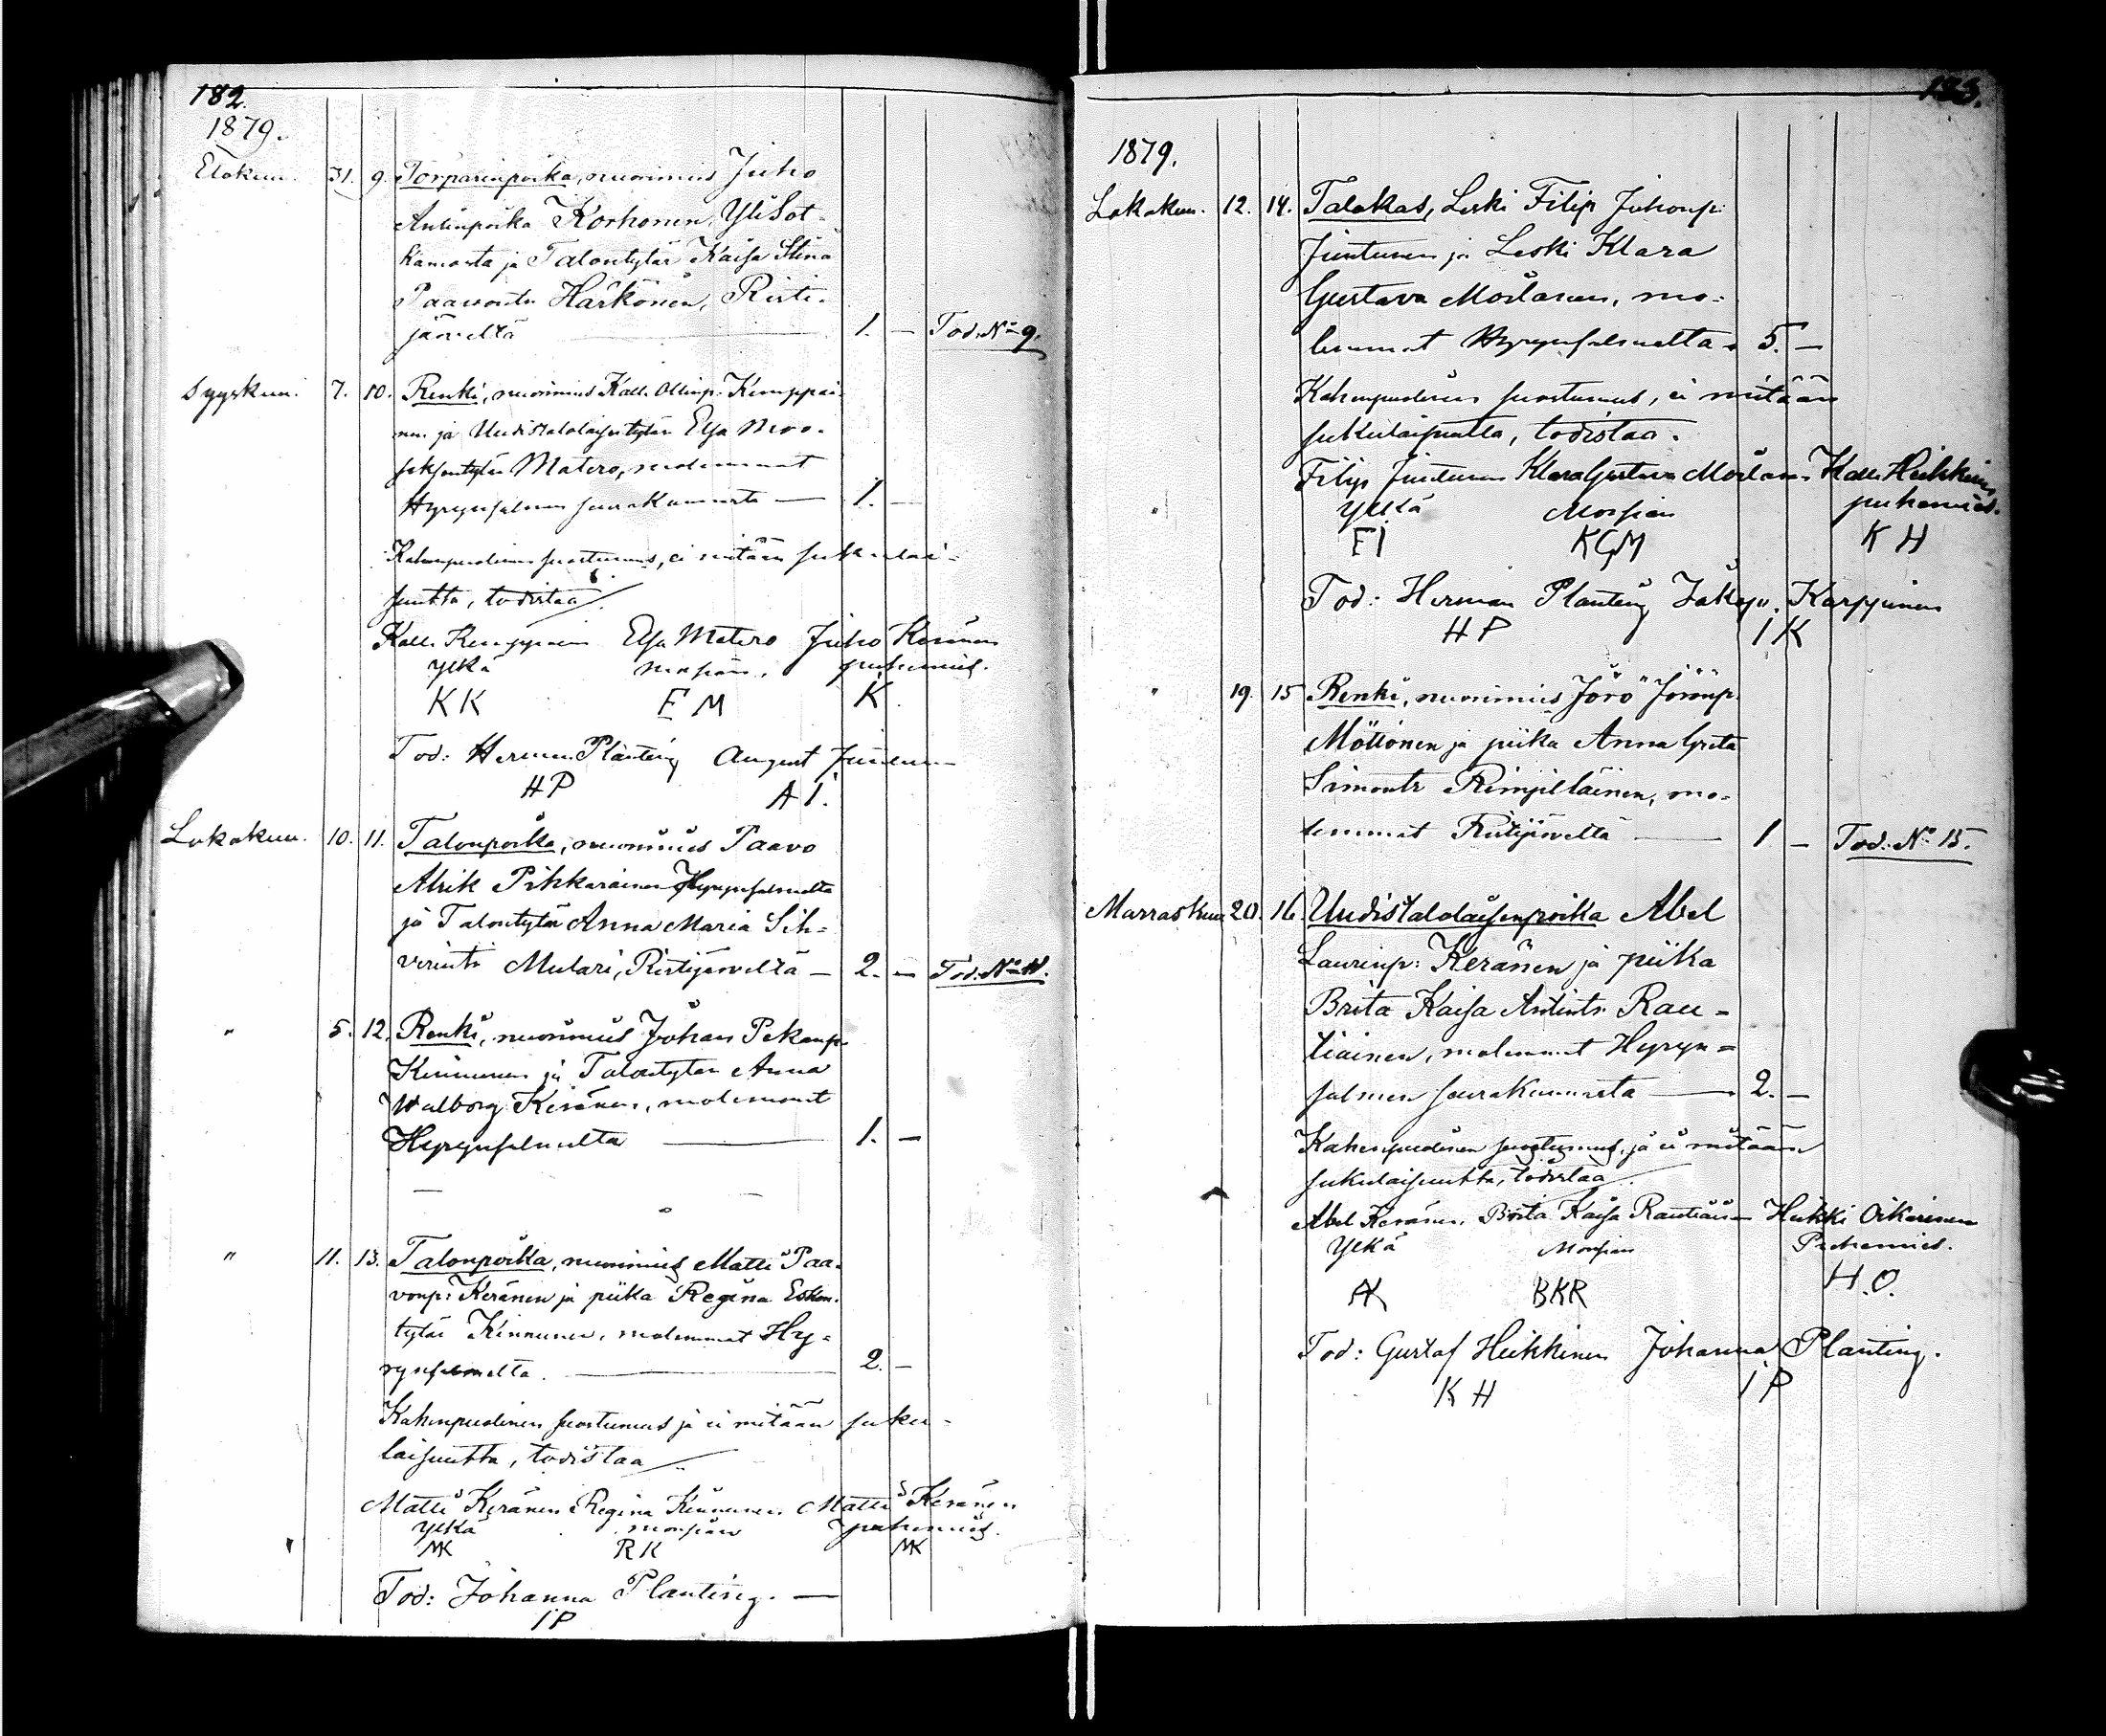 182.
1879.
Elokuu. 31. 9. Torparinpoika, nuorimies Juho
Antinpoika Korhonen, YliSot-
kamosta ja Talontytär Kaisa Stina
Paavontr Härkönen, Risti-
järveltä 1. — Tod: No 9.
Syyskuu. 7. 10. Renki, nuorimies Kalle Ollinp. Kemppai-
nen ja Uudistalolaisen tytär Elsa
Matero, molemmat
Hyrynsalmen seurakunnasta — 1. —
Kahenpuolinen suostumus, ei mitään sukulai-
suutta, todistaa
Kalle Kemppainen Elsa Matero Juho Keränen
Ylkä morsian. puhemies.
KK EM K
Tod: Herman Planting August Juntunen
HP AI.
Lokakuu. 10. 11. Talonpoika, nuorimies Paavo
Abrik Pikkarainen Hyrynsalmelta
ja Talontytär Anna Maria Sih-
verintr Mulari, Ristijärveltä — 2. — Tod: No 11.
" 5. 12. Renki, nuorimies Johan Pekanp.
Kinnunen ja Talontytär Anna
Walborg Keränen, molemmat
Hyrynsalmelta 1. —
" 11. 13. Talonpoika, nuorimies Matti Paa-
vonp: Keränen ja piika Regina Eskon-
tytär Kinnunen, molemmat Hy-
rynsalmelta. 2. —
Kahenpuolinen suostumus ja ei mitään suku-
laisuutta, todistaa
Matti Keränen Regina Kinnunen Matti Keränen
Ylkä morsian puhemies.
MK RK MK
Tod: Johanna Planting. —
IP
183.
1879.
Lokakuu. 12. 14. Talokas, Leski Filip Juhonp:
Juntunen ja Leski Klara
Gustava Moilanen, mo-
lemmat Hyrynsalmelta 5. —
Kahenpuolinen suostumus, ei mitään
sukulaisuutta, todistaa.
Filip Juntunen Klara Gustava Moilanen Kalle Heikkinen
Ylkä Morsian puhemies.
FI KGM KH
Tod: Herman Planting Karppinen
HP IK
" 19. 15 Renki, nuorimies Jörö Jörönp.
Möttönen ja piika Anna Greta
Simontr Rimpiläinen, mo-
lemmat Ristijärveltä 1 — Tod: No 15.
Marraskuu 20. 16. Uudistalolaisenpoika Abel
Laurinp: Keränen ja piika
Brita Kaisa Antintr. Rau-
tiainen, molemmat Hyryn-
salmen seurakunnasta 2. —
Kahenpuolinen suostumus, ja ei mitään
sukulaisuutta, todistaa
Abel Keränen. Brita Kaisa Rautiainen Heikki Oikarinen
Ylkä Morsian Puhemies.
AK BKR H.O.
Tod: Gustaf Heikkinen Johanna Planting.
KH IP